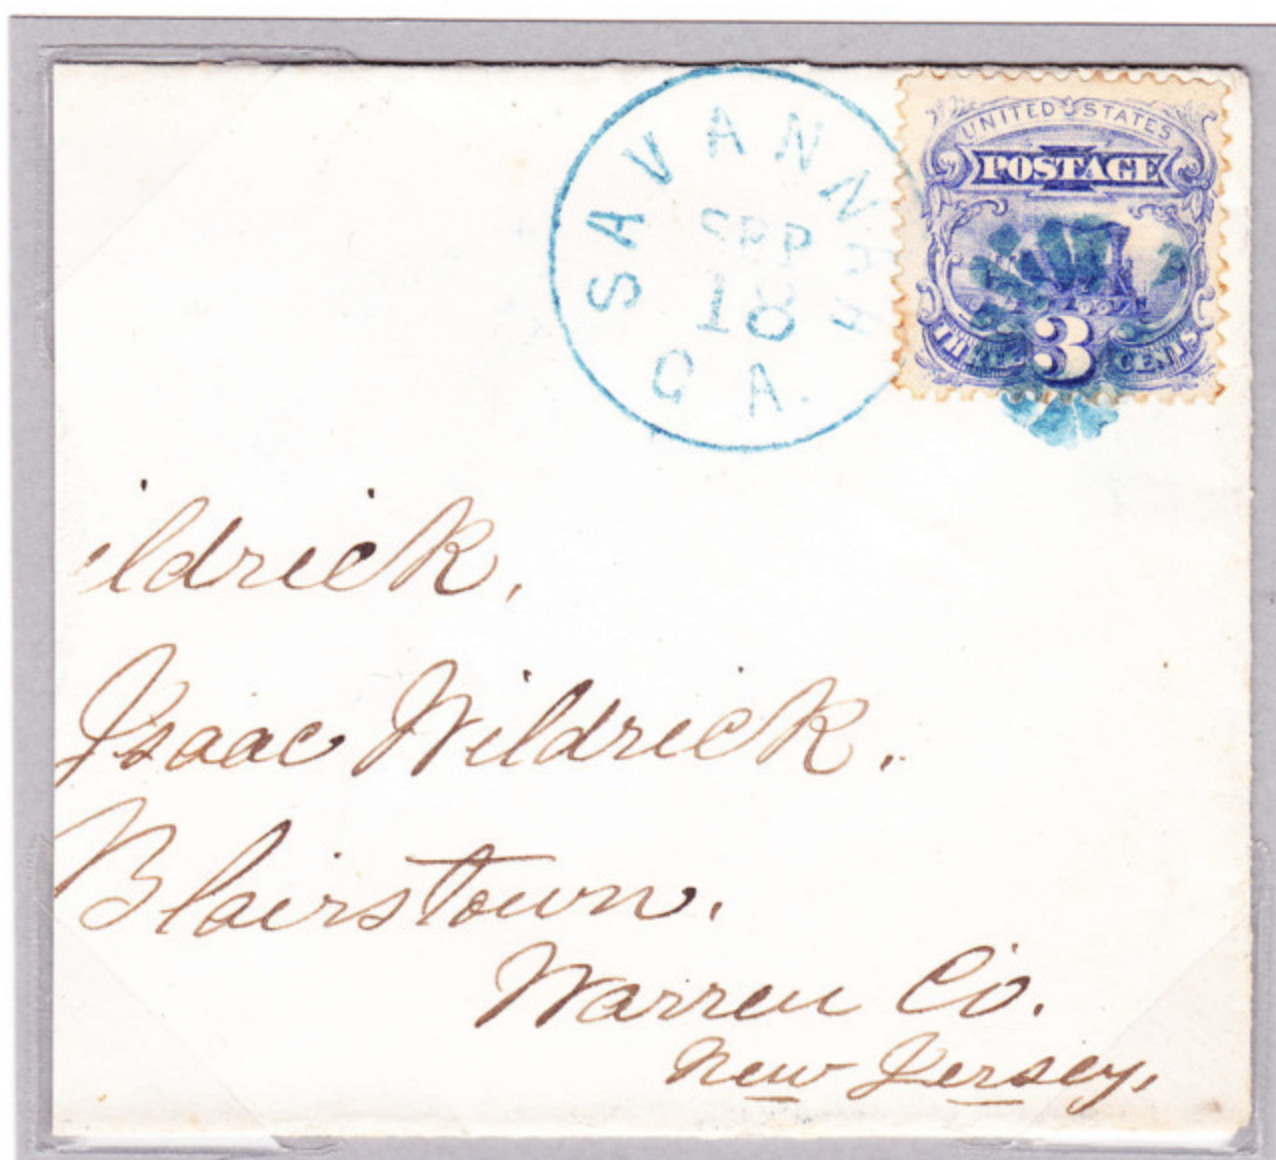 SAVANNAH
SEP
18
GA.
UNITED STATES
POSTAGE
THREE 3 CENTS
ildrick,
Isaac Wildrick.
Blairstown.
Warren Co.
New Jersey,